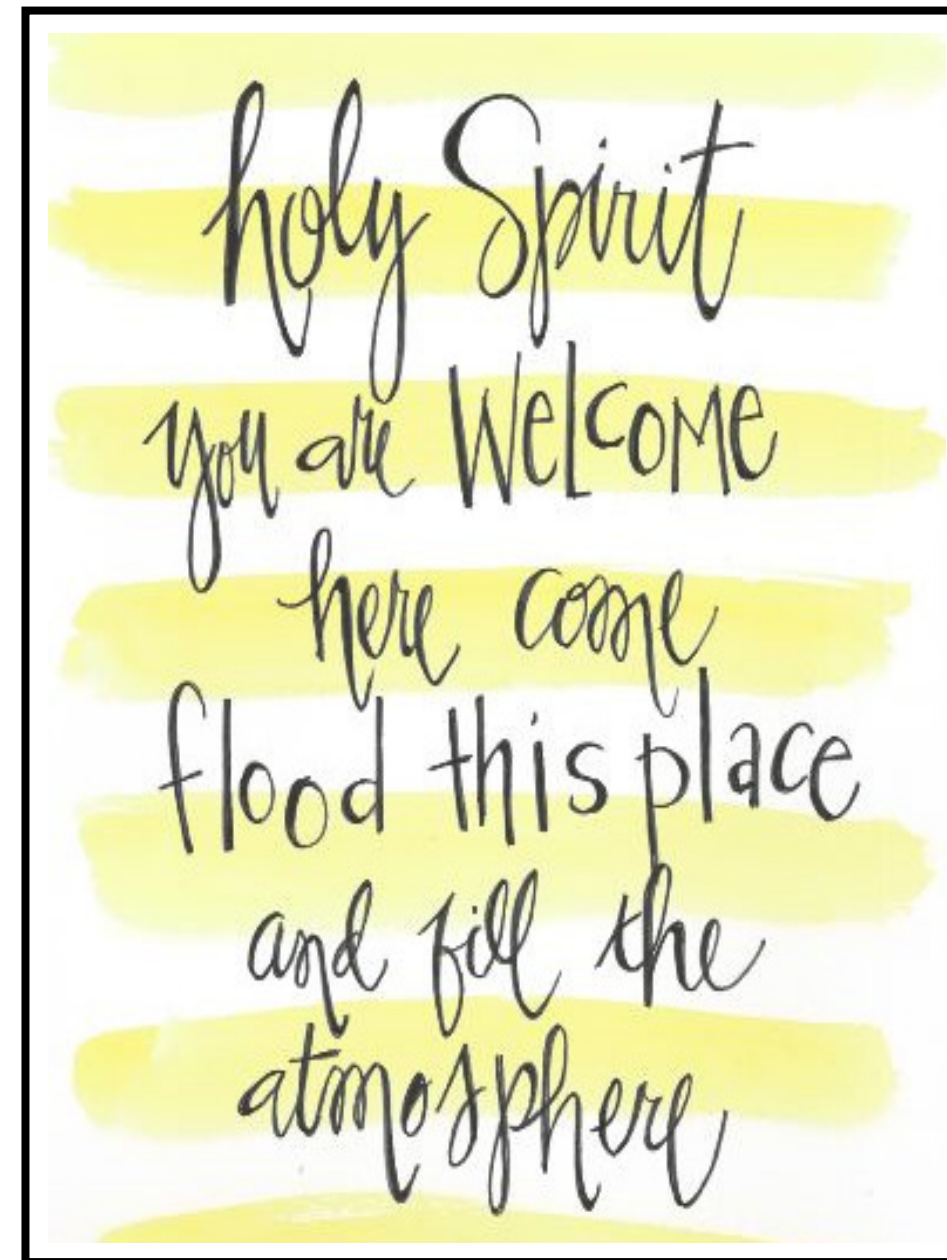 holy Spirit
you are WelcoMe
here come
flood this place
and fill the
atmosphere